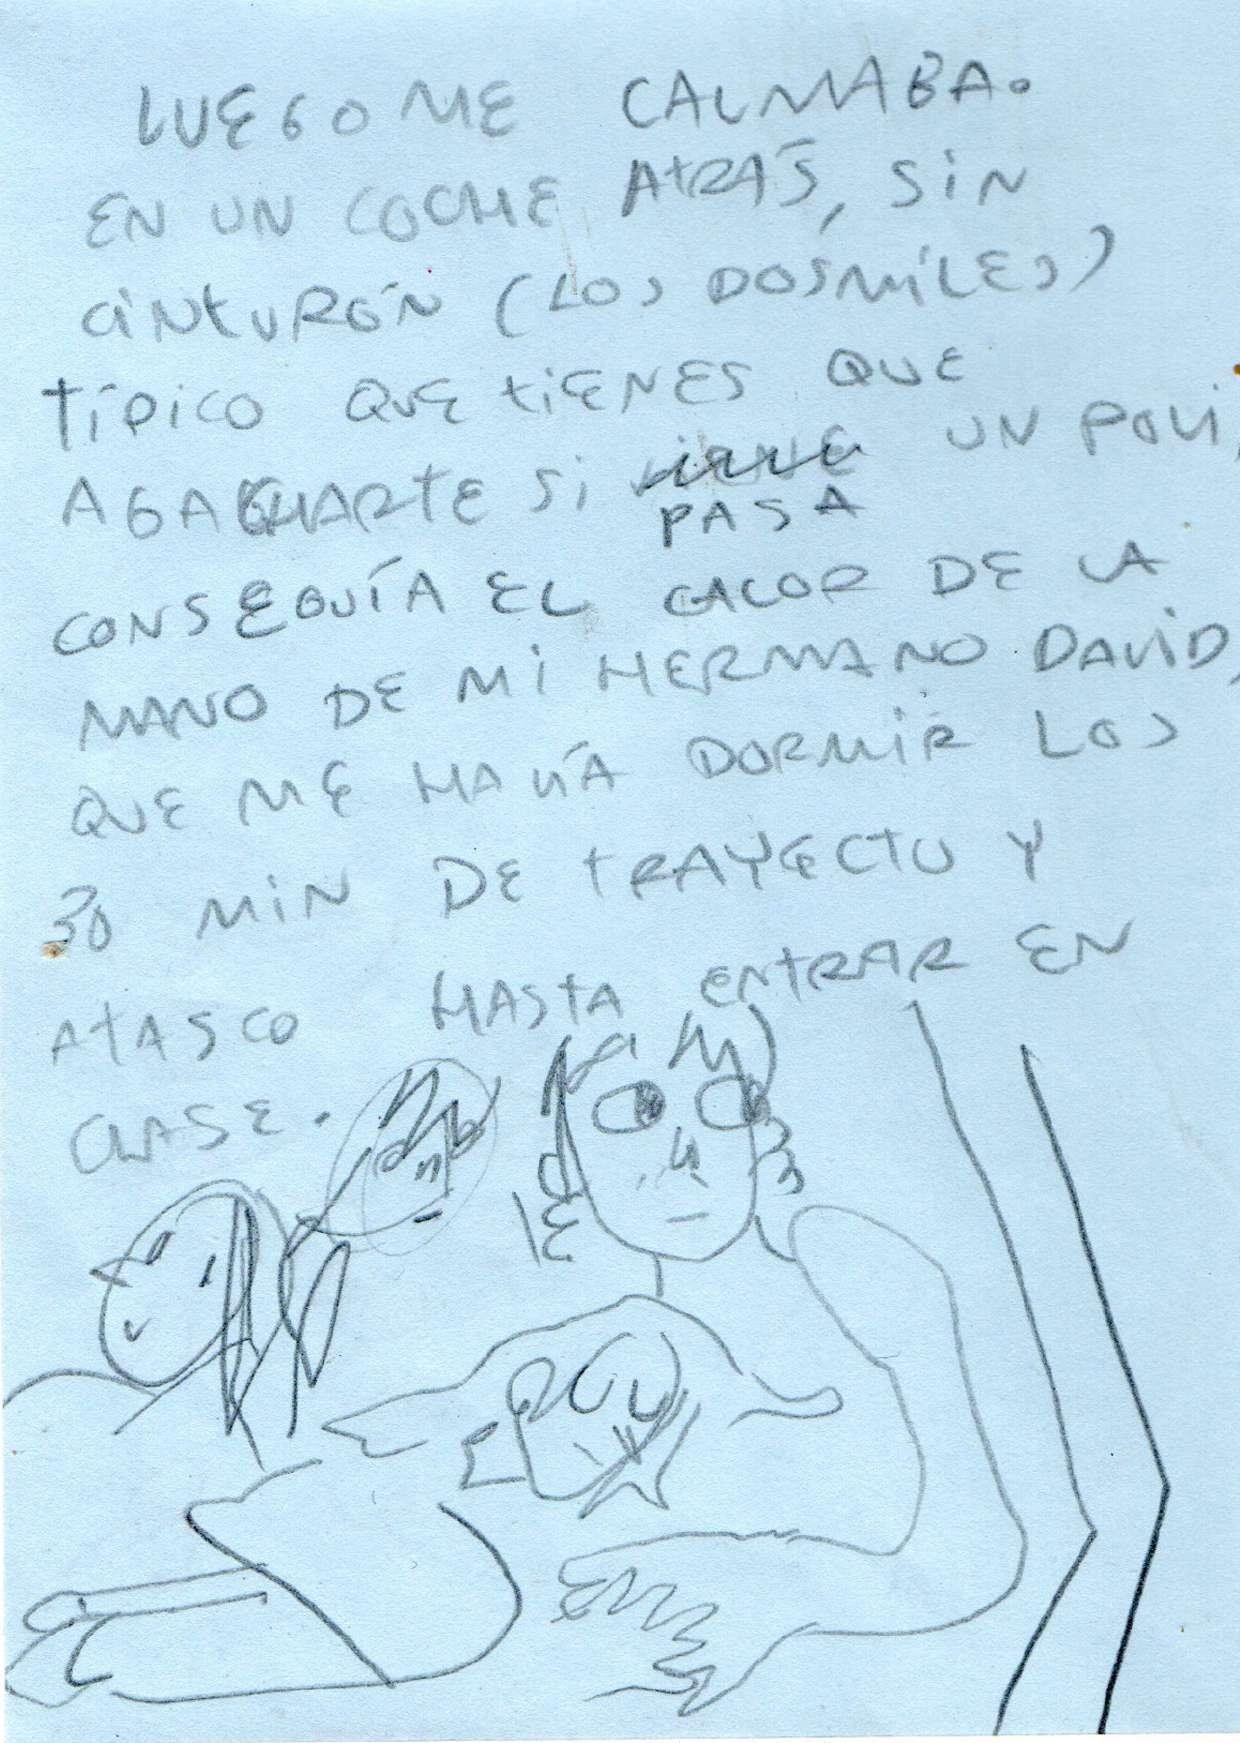 LUEGO ME CALMABA.
EN UN COCHE ATRÁS, SIN
CINTURÓN (LOS DOSMILES)
TÍPICO QUE TIENES QUE
AGACHARTE SI VIENE UN POLI,
PASA
CONSEGUÍA EL CALOR DE LA
MANO DE MI HERMANO DAVID,
QUE ME HACÍA DORMIR LOS
30 MIN DE TRAYECTO Y
ATASCO HASTA ENTRAR EN
CLASE.